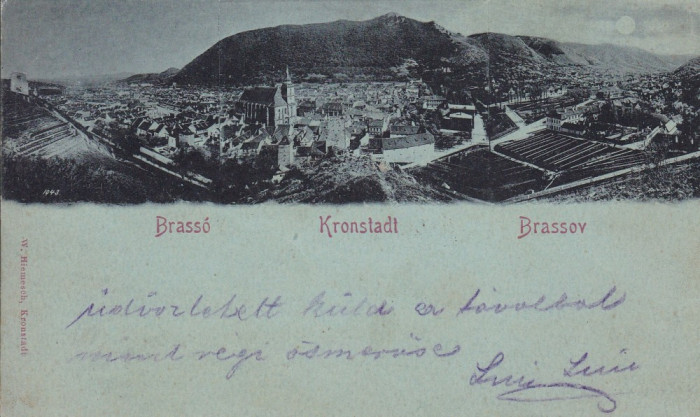 1993
Brassó Kronstadt Brassov
W. Hiemesch, Kronstadt
üdvözletett küld a távolbol
mint regi ösmerőse